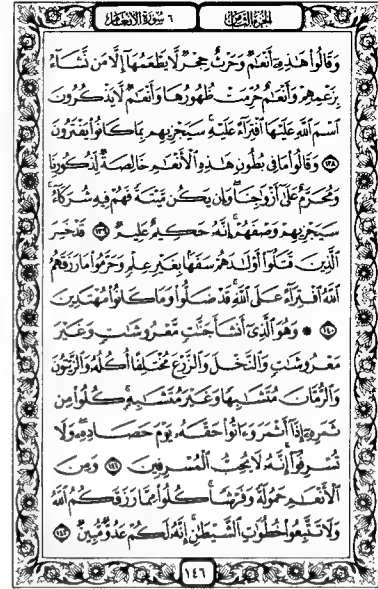 الجزء الثامن ٦ سورة الأنعام
وَقَالُوا۟ هَـٰذِهِۦٓ أَنْعَـٰمٌ وَحَرْثٌ حِجْرٌ لَّا يَطْعَمُهَآ إِلَّا مَن نَّشَآءُ
بِزَعْمِهِمْ وَأَنْعَـٰمٌ حُرِّمَتْ ظُهُورُهَا وَأَنْعَـٰمٌ لَّا يَذْكُرُونَ
ٱسْمَ ٱللَّهِ عَلَيْهَا ٱفْتِرَآءً عَلَيْهِ ۚ سَيَجْزِيهِم بِمَا كَانُوا۟ يَفْتَرُونَ
١٣٨ وَقَالُوا۟ مَا فِى بُطُونِ هَـٰذِهِ ٱلْأَنْعَـٰمِ خَالِصَةٌ لِّذُكُورِنَا
وَمُحَرَّمٌ عَلَىٰٓ أَزْوَٰجِنَا ۖ وَإِن يَكُن مَّيْتَةً فَهُمْ فِيهِ شُرَكَآءُ ۚ
سَيَجْزِيهِمْ وَصْفَهُمْ ۚ إِنَّهُۥ حَكِيمٌ عَلِيمٌ ١٣٩ قَدْ خَسِرَ
ٱلَّذِينَ قَتَلُوٓا۟ أَوْلَـٰدَهُمْ سَفَهًۢا بِغَيْرِ عِلْمٍ وَحَرَّمُوا۟ مَا رَزَقَهُمُ
ٱللَّهُ ٱفْتِرَآءً عَلَى ٱللَّهِ ۚ قَدْ ضَلُّوا۟ وَمَا كَانُوا۟ مُهْتَدِينَ
١٤٠ ۞ وَهُوَ ٱلَّذِىٓ أَنشَأَ جَنَّـٰتٍ مَّعْرُوشَـٰتٍ وَغَيْرَ
مَعْرُوشَـٰتٍ وَٱلنَّخْلَ وَٱلزَّرْعَ مُخْتَلِفًا أُكُلُهُۥ وَٱلزَّيْتُونَ
وَٱلرُّمَّانَ مُتَشَـٰبِهًا وَغَيْرَ مُتَشَـٰبِهٍ ۚ كُلُوا۟ مِن
ثَمَرِهِۦٓ إِذَآ أَثْمَرَ وَءَاتُوا۟ حَقَّهُۥ يَوْمَ حَصَادِهِۦ ۖ وَلَا
تُسْرِفُوٓا۟ ۚ إِنَّهُۥ لَا يُحِبُّ ٱلْمُسْرِفِينَ ١٤١ وَمِنَ
ٱلْأَنْعَـٰمِ حَمُولَةً وَفَرْشًا ۚ كُلُوا۟ مِمَّا رَزَقَكُمُ ٱللَّهُ
وَلَا تَتَّبِعُوا۟ خُطُوَٰتِ ٱلشَّيْطَـٰنِ ۚ إِنَّهُۥ لَكُمْ عَدُوٌّ مُّبِينٌ ١٤٢
١٤٦